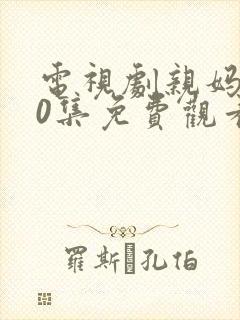 電視劇親媽
0集免費觀看
羅斯·孔伯